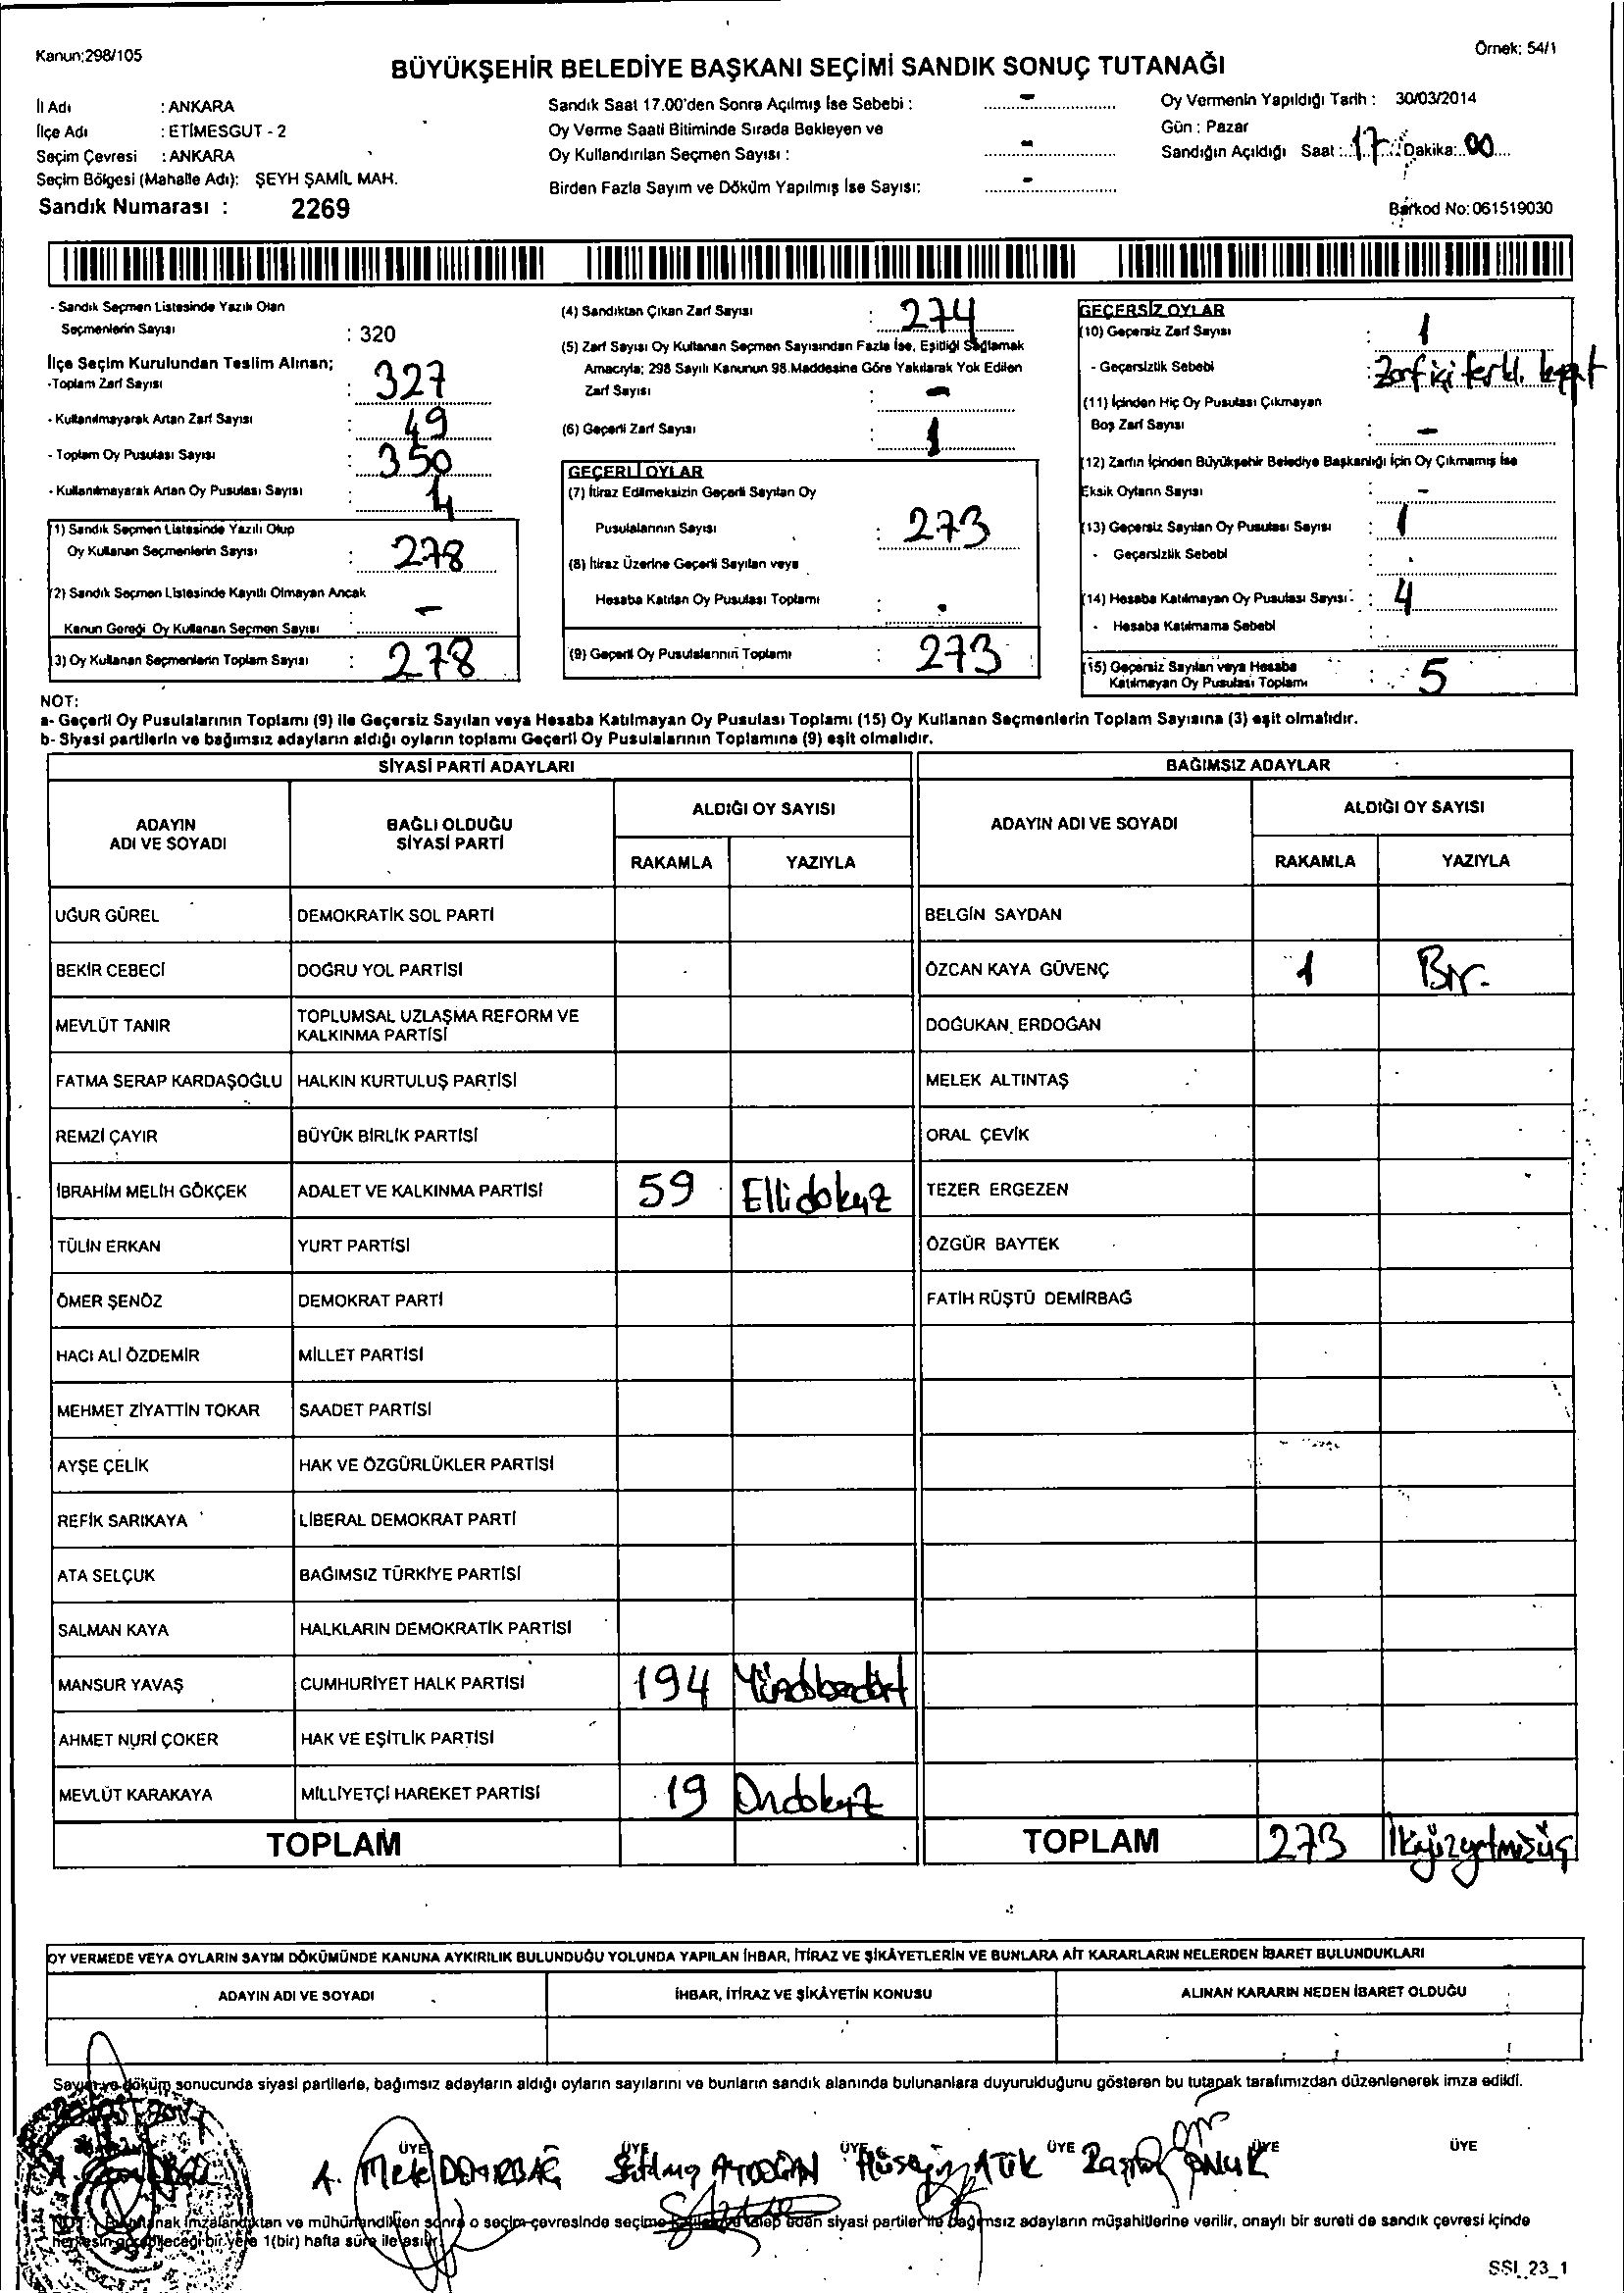 Kanun:298/105
Örnek: 54/1
BÜYÜKŞEHİR BELEDİYE BAŞKANI SEÇİMİ SANDIK SONUÇ TUTANAĞI
İl Adı : ANKARA
İlçe Adı : ETİMESGUT - 2
Seçim Çevresi : ANKARA
Seçim Bölgesi (Mahalle Adı): ŞEYH ŞAMİL MAH.
Sandık Numarası : 2269
Sandık Saat 17.00'den Sonra Açılmış İse Sebebi : -
Oy Verme Saati Bitiminde Sırada Bekleyen ve
Oy Kullandırılan Seçmen Sayısı : -
Birden Fazla Sayım ve Döküm Yapılmış İse Sayısı: -
Oy Vermenin Yapıldığı Tarih : 30/03/2014
Gün : Pazar
Sandığın Açıldığı Saat : 17 Dakika: 00
Barkod No: 061519030
- Sandık Seçmen Listesinde Yazılı Olan
Seçmenlerin Sayısı : 320
İlçe Seçim Kurulundan Teslim Alınan;
-Toplam Zarf Sayısı : 327
- Kullanılmayarak Artan Zarf Sayısı : 49
- Toplam Oy Pusulası Sayısı : 350
- Kullanılmayarak Artan Oy Pusulası Sayısı :
(1) Sandık Seçmen Listesinde Yazılı Olup
Oy Kullanan Seçmenlerin Sayısı : 278
(2) Sandık Seçmen Listesinde Kayıtlı Olmayan Ancak
Kanun Gereği Oy Kullanan Seçmen Sayısı : -
(3) Oy Kullanan Seçmenlerin Toplam Sayısı : 278
(4) Sandıktan Çıkan Zarf Sayısı : 274
(5) Zarf Sayısı Oy Kullanan Seçmen Sayısından Fazla İse, Eşitliği Sağlamak
Amacıyla; 298 Sayılı Kanunun 98.Maddesine Göre Yakılarak Yok Edilen
Zarf Sayısı : -
(6) Geçerli Zarf Sayısı : 1
GEÇERLİ OYLAR
(7) İtiraz Edilmeksizin Geçerli Sayılan Oy
Pusulalarının Sayısı : 273
(8) İtiraz Üzerine Geçerli Sayılan veya
Hesaba Katılan Oy Pusulası Toplamı : .
(9) Geçerli Oy Pusulalarının Toplamı : 273
GEÇERSİZ OYLAR
(10) Geçersiz Zarf Sayısı : 1
- Geçersizlik Sebebi : Zarf içi
(11) İçinden Hiç Oy Pusulası Çıkmayan
Boş Zarf Sayısı : -
(12) Zarfın İçinden Büyükşehir Belediye Başkanlığı İçin Oy Çıkmamış İse
Eksik Oyların Sayısı : -
(13) Geçersiz Sayılan Oy Pusulası Sayısı : 1
- Geçersizlik Sebebi :
(14) Hesaba Katılmayan Oy Pusulası Sayısı : 4
- Hesaba Katılmama Sebebi :
(15) Geçersiz Sayılan veya Hesaba
Katılmayan Oy Pusulası Toplamı : 5
NOT:
a- Geçerli Oy Pusulalarının Toplamı (9) ile Geçersiz Sayılan veya Hesaba Katılmayan Oy Pusulası Toplamı (15) Oy Kullanan Seçmenlerin Toplam Sayısına (3) eşit olmalıdır.
b- Siyasi partilerin ve bağımsız adayların aldığı oyların toplamı Geçerli Oy Pusulalarının Toplamına (9) eşit olmalıdır.
SİYASİ PARTİ ADAYLARI BAĞIMSIZ ADAYLAR
ADAYIN ADI VE SOYADI BAĞLI OLDUĞU SİYASİ PARTİ ALDIĞI OY SAYISI ADAYIN ADI VE SOYADI ALDIĞI OY SAYISI
RAKAMLA YAZIYLA RAKAMLA YAZIYLA
UĞUR GÜREL DEMOKRATİK SOL PARTİ BELGİN SAYDAN
BEKİR CEBECİ DOĞRU YOL PARTİSİ ÖZCAN KAYA GÜVENÇ 1 Bir.
MEVLÜT TANIR TOPLUMSAL UZLAŞMA REFORM VE KALKINMA PARTİSİ DOĞUKAN ERDOĞAN
FATMA SERAP KARDAŞOĞLU HALKIN KURTULUŞ PARTİSİ MELEK ALTINTAŞ
REMZİ ÇAYIR BÜYÜK BİRLİK PARTİSİ ORAL ÇEVİK
İBRAHİM MELİH GÖKÇEK ADALET VE KALKINMA PARTİSİ 59 Ellidokuz TEZER ERGEZEN
TÜLİN ERKAN YURT PARTİSİ ÖZGÜR BAYTEK
ÖMER ŞENÖZ DEMOKRAT PARTİ FATİH RÜŞTÜ DEMİRBAĞ
HACI ALİ ÖZDEMİR MİLLET PARTİSİ
MEHMET ZİYATTİN TOKAR SAADET PARTİSİ
AYŞE ÇELİK HAK VE ÖZGÜRLÜKLER PARTİSİ
REFİK SARIKAYA LİBERAL DEMOKRAT PARTİ
ATA SELÇUK BAĞIMSIZ TÜRKİYE PARTİSİ
SALMAN KAYA HALKLARIN DEMOKRATİK PARTİSİ
MANSUR YAVAŞ CUMHURİYET HALK PARTİSİ 194
AHMET NURİ ÇOKER HAK VE EŞİTLİK PARTİSİ
MEVLÜT KARAKAYA MİLLİYETÇİ HAREKET PARTİSİ 19 Ondokuz
TOPLAM TOPLAM 273 İkiyüzyetmişüç
OY VERMEDE VEYA OYLARIN SAYIM DÖKÜMÜNDE KANUNA AYKIRILIK BULUNDUĞU YOLUNDA YAPILAN İHBAR, İTİRAZ VE ŞİKÂYETLERİN VE BUNLARA AİT KARARLARIN NELERDEN İBARET BULUNDUKLARI
ADAYIN ADI VE SOYADI İHBAR, İTİRAZ VE ŞİKÂYETİN KONUSU ALINAN KARARIN NEDEN İBARET OLDUĞU
Sayım ve döküm sonucunda siyasi partilerle, bağımsız adayların aldığı oyların sayılarını ve bunların sandık alanında bulunanlara duyurulduğunu gösteren bu tutanak tarafımızdan düzenlenerek imza edildi.
ÜYE ÜYE ÜYE ÜYE ÜYE ÜYE
A. DEMİRBAĞ AYDOĞAN Hüseyin ATİK
NOT: Bu tutanak imzalandıktan ve mühürlendikten sonra o seçim çevresinde seçime katılan ve talep eden siyasi partiler ile bağımsız adayların müşahitlerine verilir, onaylı bir sureti de sandık çevresi içinde
herkesin görebileceği bir yere 1(bir) hafta süre ile asılır.
SSI_23_1